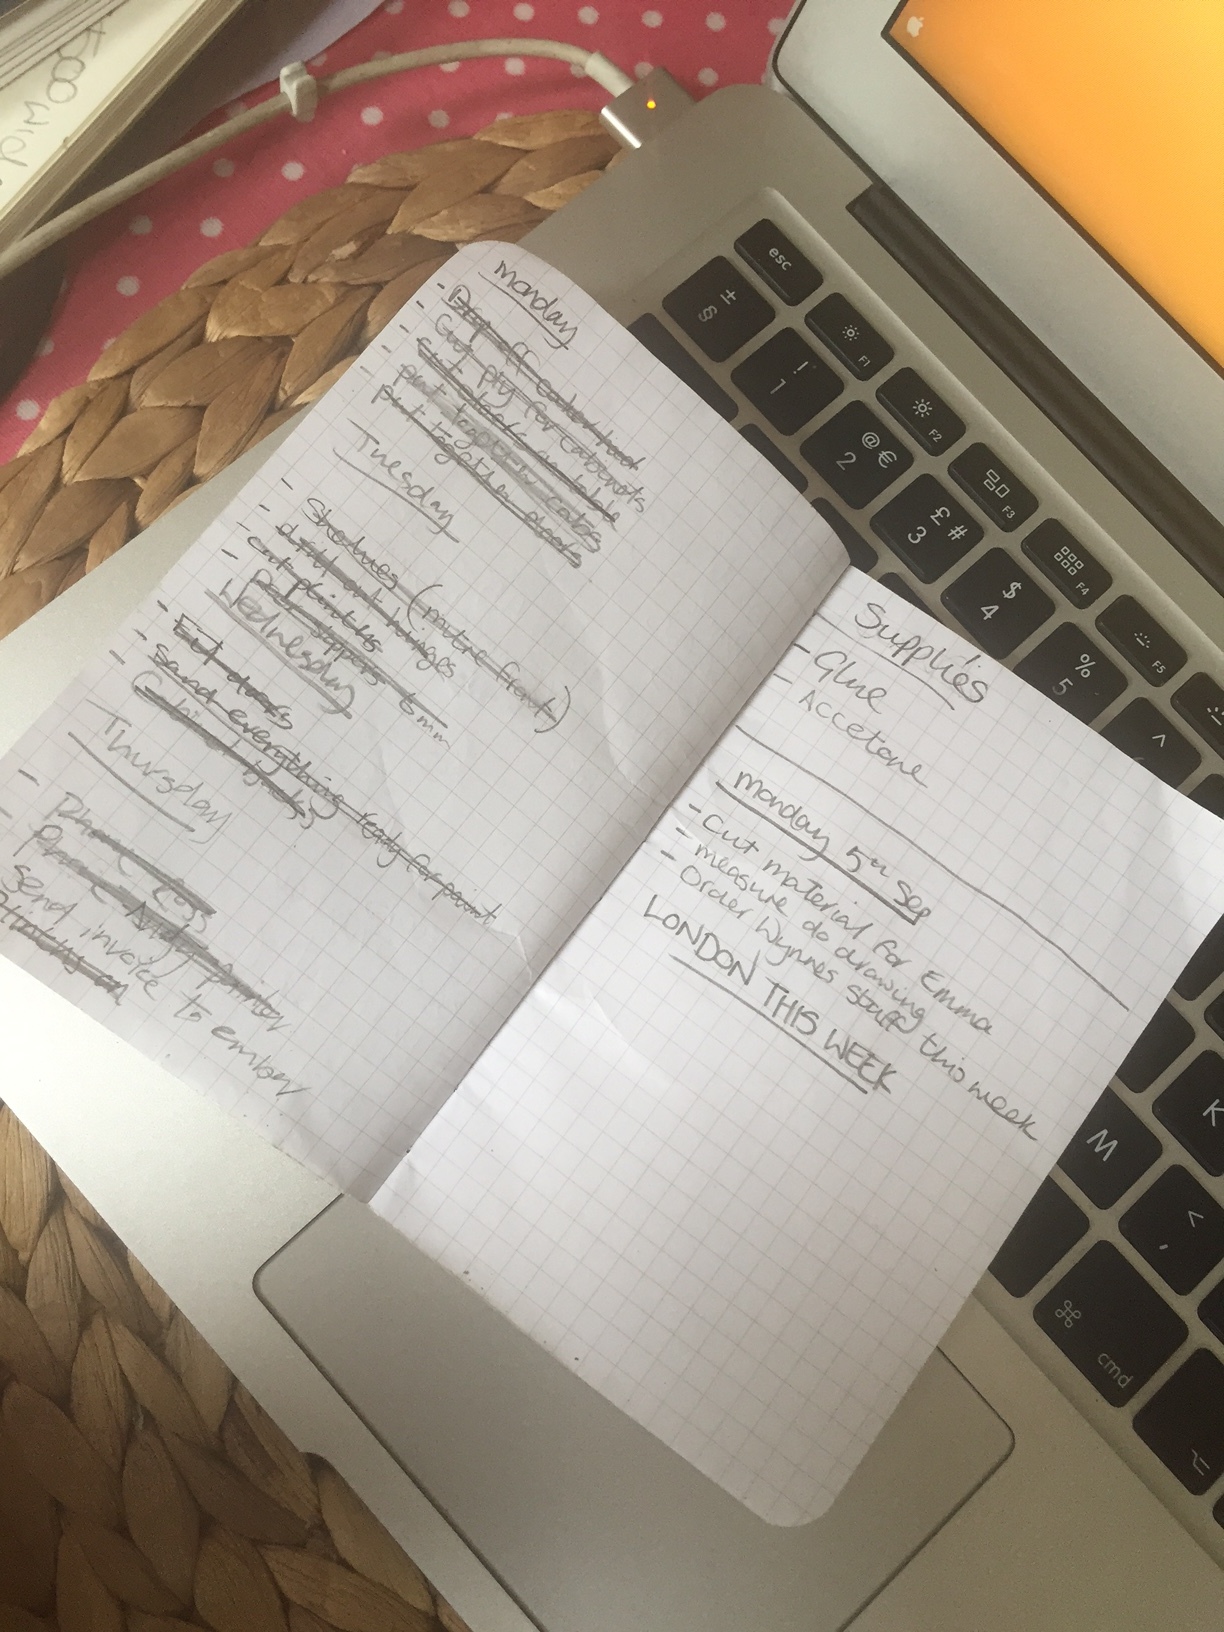 Monday
- Drop off
- Cut ply for cabinets
- Cut
- put together
- put together doors
Tuesday
- Shelves (mitre front)
- drill out hinges
- cut plinths
- 6mm
Wednesday
- doors
- Sand everything ready for paint
- backs)
Thursday
- Phone Ross
- Phone Andy
send invoice to ember
Supplies
- Glue
- Accetone
Monday 5th Sep
- Cut material for Emma
- measure do drawing
- Order Wynnes stuff this week
LONDON THIS WEEK
esc
±
§
!
1
@ €
2
£ #
3
$
4
%
5
^
F1
F2
F3
F4
F5
K
M
<
,
⌘
cmd
⌥